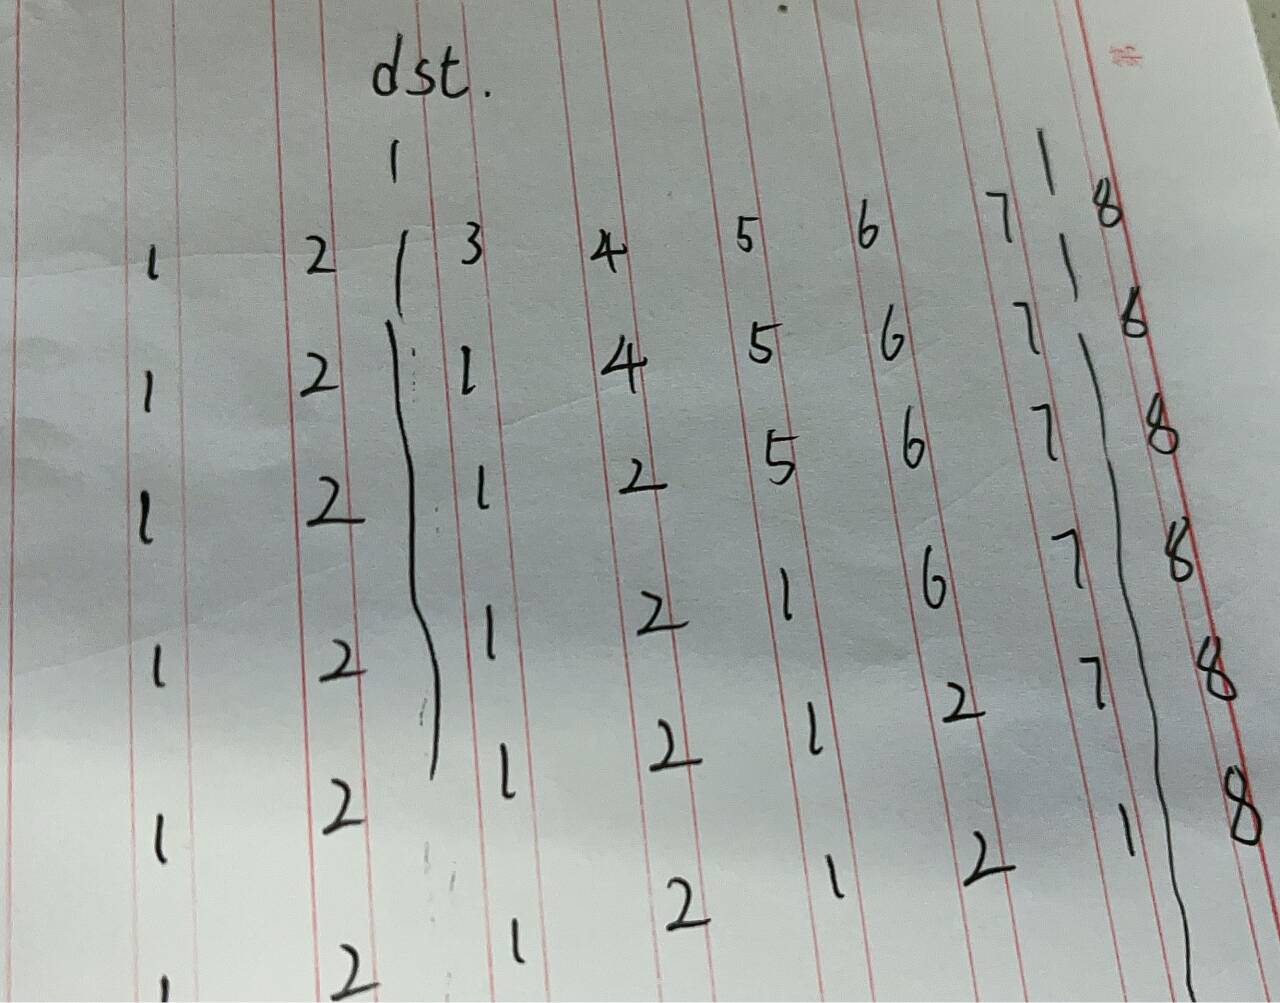 dst.
1 2 3 4 5 6 7 8
1 2 1 4 5 6 7 8
1 2 1 2 5 6 7 8
1 2 1 2 1 6 7 8
1 2 1 2 1 2 7 8
1 2 1 2 1 2 1 8